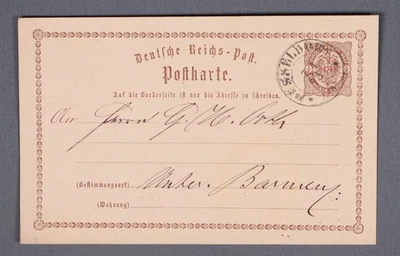 Deutsche Reichs-Post.
Postkarte.
DÜSSELDORF
Auf die Vorderseite ist nur die Adresse zu schreiben.
An Herrn G. H.
(Bestimmungsort) Unter-Barmen.
(Wohnung)